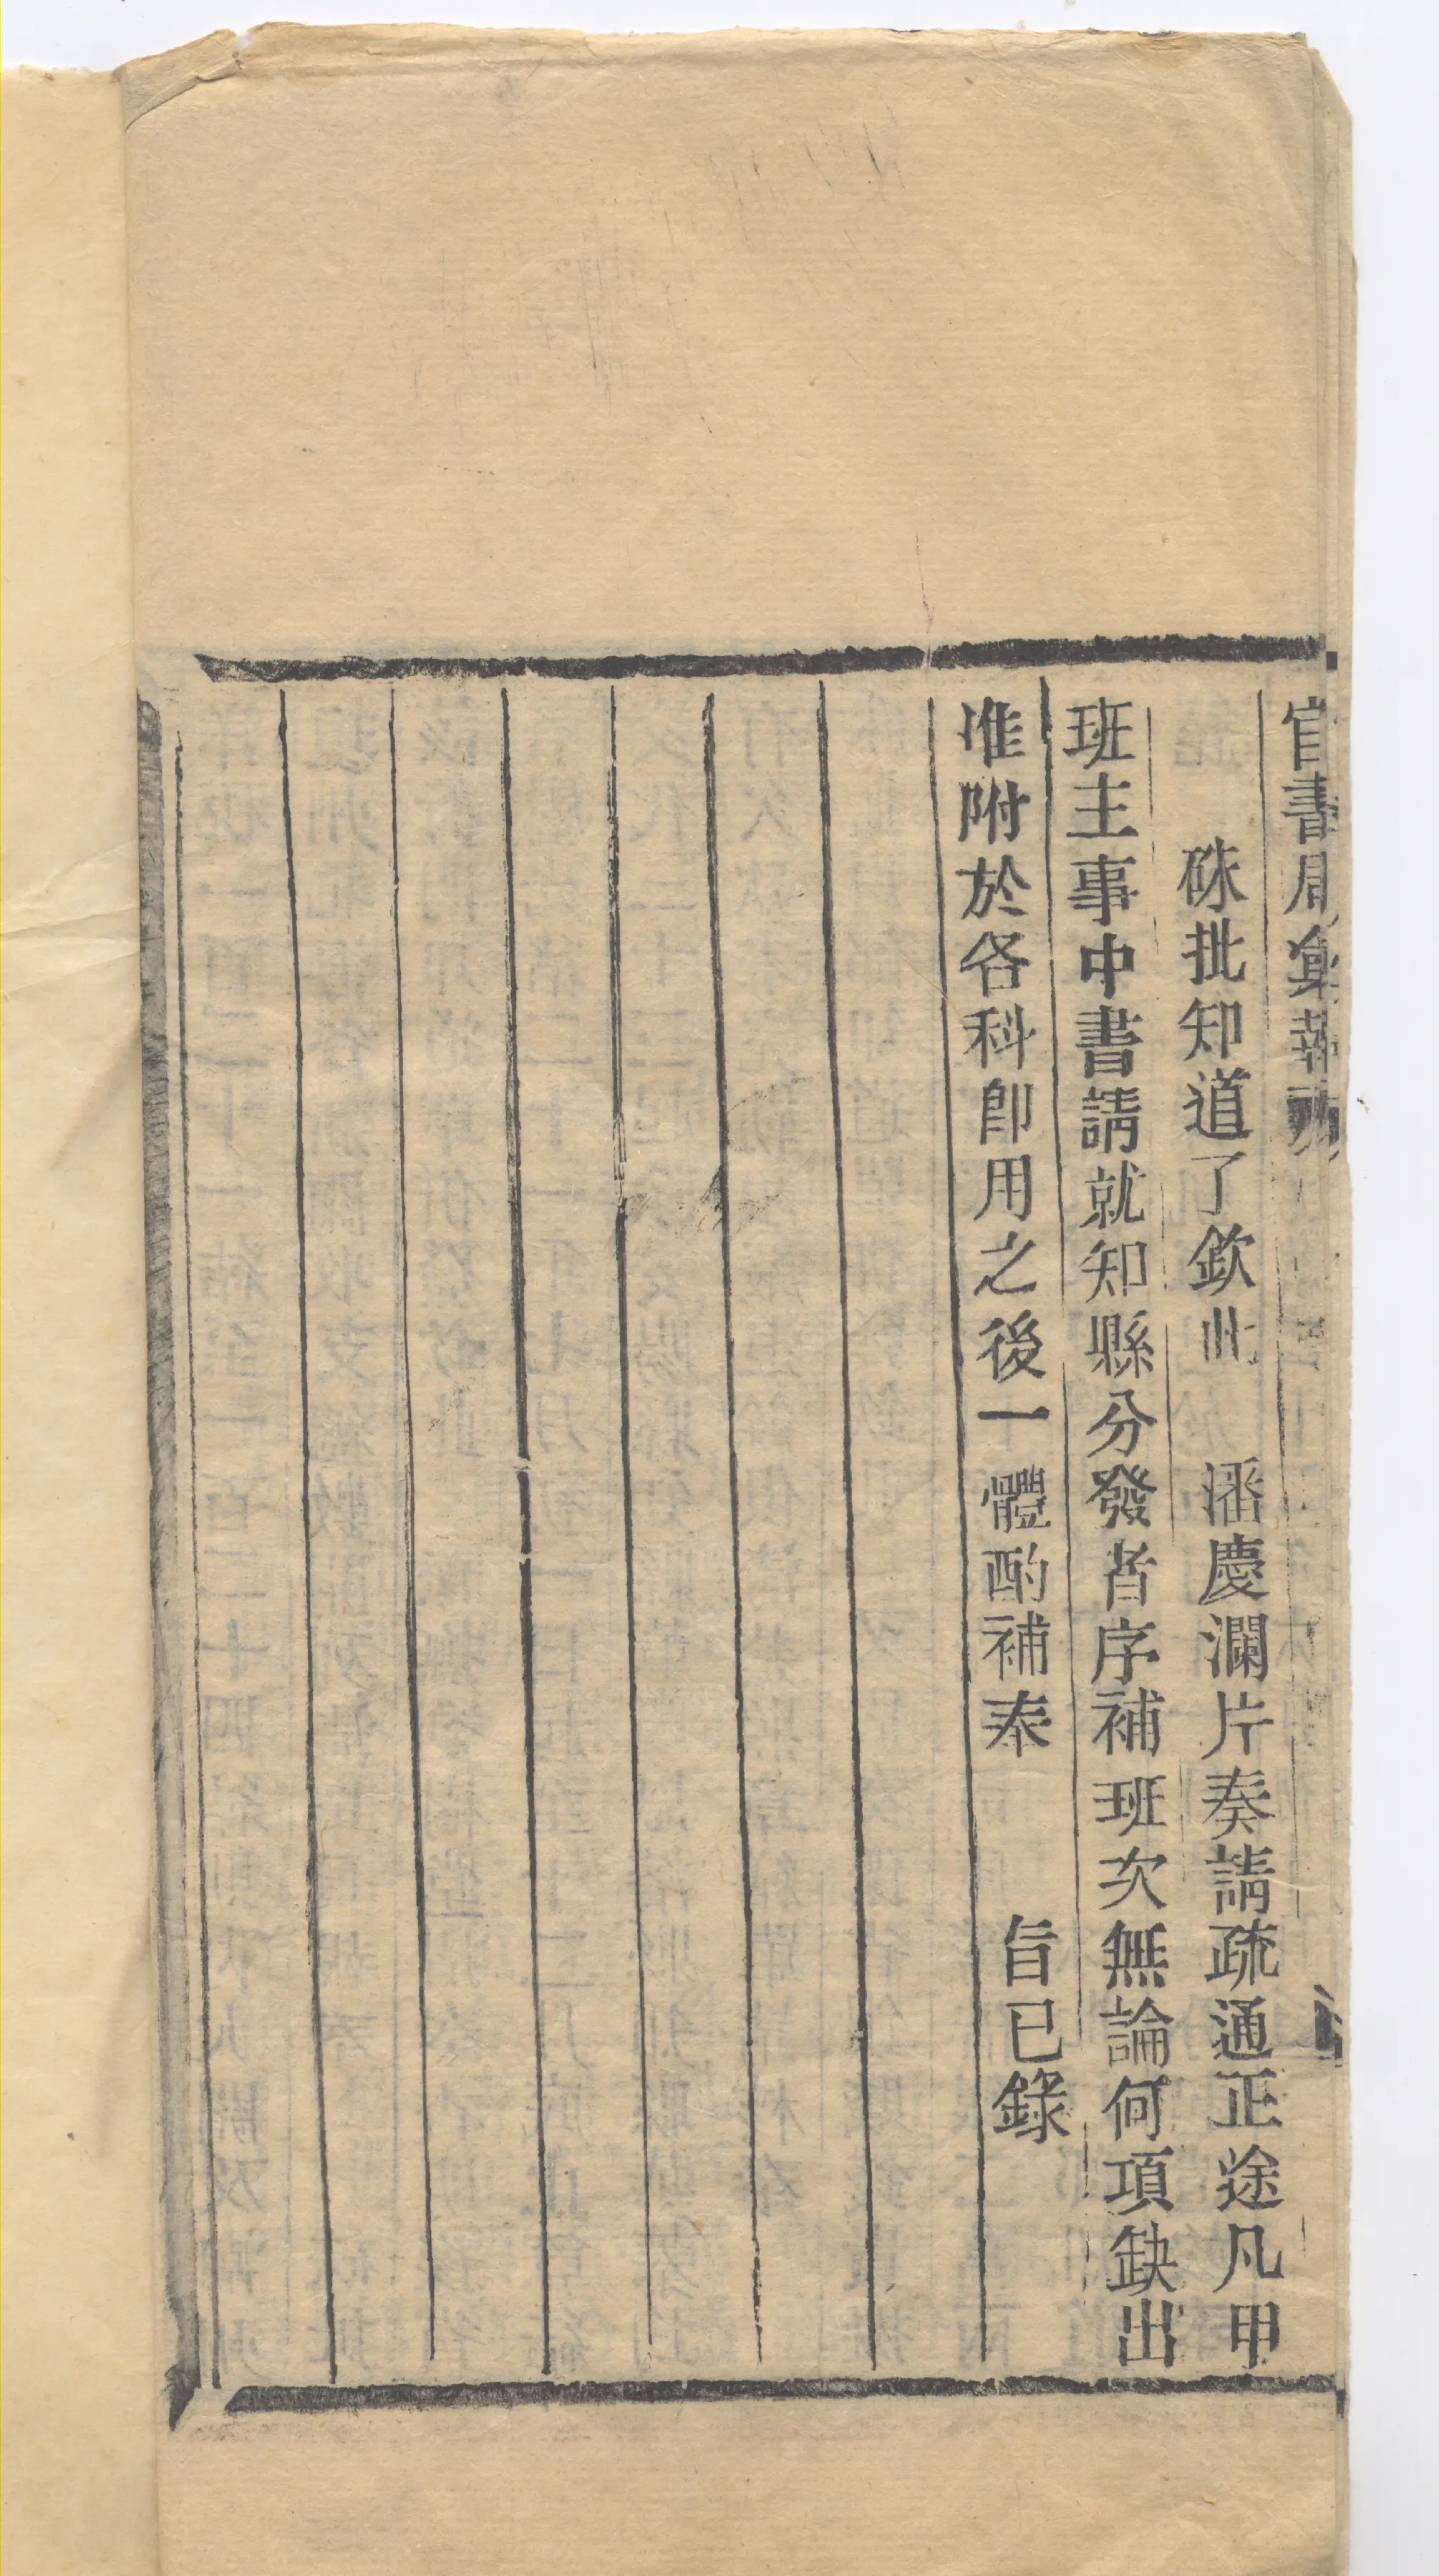 官書局彙報
硃批知道了欽此　潘慶瀾片奏請疏通正途凡甲
班主事中書請就知縣分發者序補班次無論何項缺出
准附於各科即用之後一體酌補奉　旨已錄